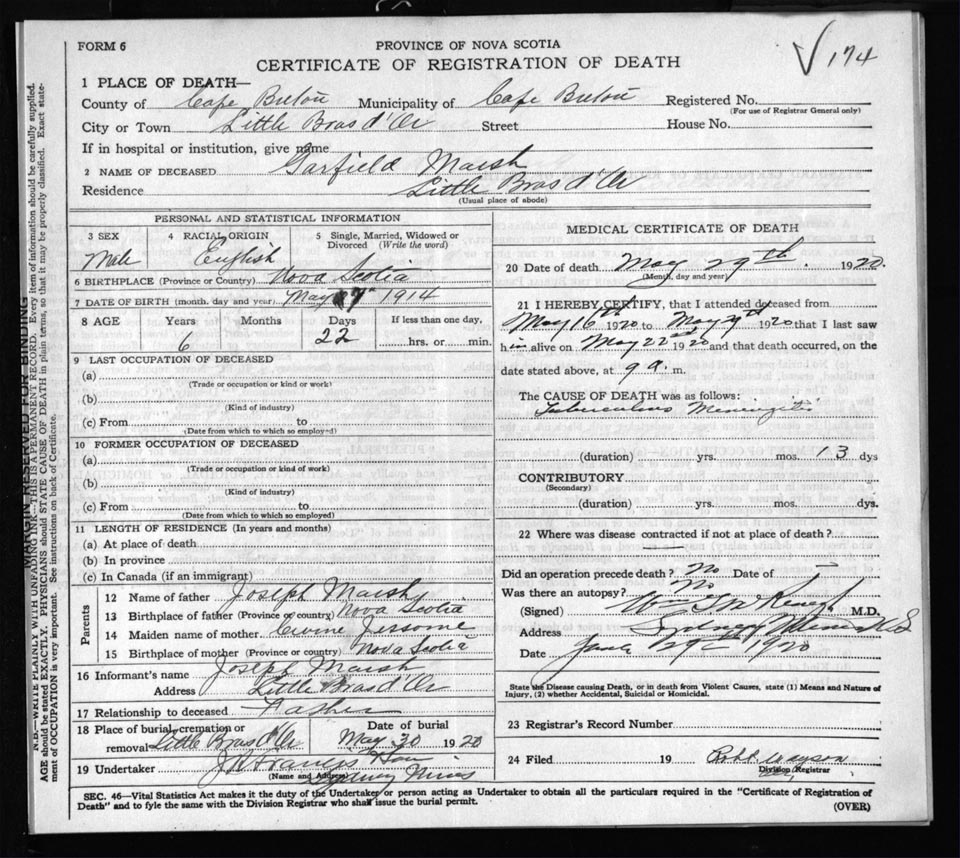 FORM 6
PROVINCE OF NOVA SCOTIA
CERTIFICATE OF REGISTRATION OF DEATH
174
1 PLACE OF DEATH—
County of Cape Breton Municipality of Cape Breton Registered No.
(For use of Registrar General only)
City or Town Little Bras d'Or Street House No.
If in hospital or institution, give name
2 NAME OF DECEASED Garfield Marsh
Residence Little Bras d'Or
(Usual place of abode)
PERSONAL AND STATISTICAL INFORMATION
3 SEX Male
4 RACIAL ORIGIN English
5 Single, Married, Widowed or Divorced (Write the word)
6 BIRTHPLACE (Province or Country) Nova Scotia
7 DATE OF BIRTH (month, day and year) May 7 1914
8 AGE Years Months Days If less than one day,
6 22 hrs. or min.
9 LAST OCCUPATION OF DECEASED
(a)
(Trade or occupation or kind or work)
(b)
(Kind of industry)
(c) From to
(Date from which to which so employed)
10 FORMER OCCUPATION OF DECEASED
(a)
(Trade or occupation or kind of work)
(b)
(Kind of industry)
(c) From to
(Date from which to which so employed)
11 LENGTH OF RESIDENCE (In years and months)
(a) At place of death
(b) In province
(c) In Canada (if an immigrant)
Parents
12 Name of father Joseph Marsh
13 Birthplace of father (Province or country) Nova Scotia
14 Maiden name of mother
15 Birthplace of mother (Province or country) Nova Scotia
16 Informant's name Joseph Marsh
Address Little Bras d'Or
17 Relationship to deceased Father
18 Place of burial, cremation or removal Little Bras d'Or Date of burial May 30 1920
19 Undertaker
(Name and Address) Sydney Mines
MEDICAL CERTIFICATE OF DEATH
20 Date of death May 29th. 1920
(Month, day and year)
21 I HEREBY CERTIFY, that I attended deceased from
May 16th 1920 to May 29th 1920 that I last saw
him alive on May 22nd 1920 and that death occurred, on the
date stated above, at 9 a. m.
The CAUSE OF DEATH was as follows:
Tuberculous Meningitis
(duration) yrs. mos. 13 dys
CONTRIBUTORY
(Secondary)
(duration) yrs. mos. dys.
22 Where was disease contracted if not at place of death?
Did an operation precede death? No Date of
Was there an autopsy? No
(Signed) M.D.
Address Sydney Mines N.S
Date 1920
State the Disease causing Death, or in death from Violent Causes, state (1) Means and Nature of
Injury, (2) whether Accidental, Suicidal or Homicidal.
23 Registrar's Record Number
24 Filed 19
Division Registrar
SEC. 46—Vital Statistics Act makes it the duty of the Undertaker or person acting as Undertaker to obtain all the particulars required in the "Certificate of Registration of
Death" and to fyle the same with the Division Registrar who shall issue the burial permit.
(OVER)
MARGIN RESERVED FOR BINDING
N.B.—WRITE PLAINLY WITH UNFADING INK—THIS IS A PERMANENT RECORD. Every item of information should be carefully supplied.
AGE should be stated EXACTLY. PHYSICIANS should STATE CAUSE OF DEATH in plain terms, so that it may be properly classified. Exact state-
ment of OCCUPATION is very important. See instructions on back of Certificate.